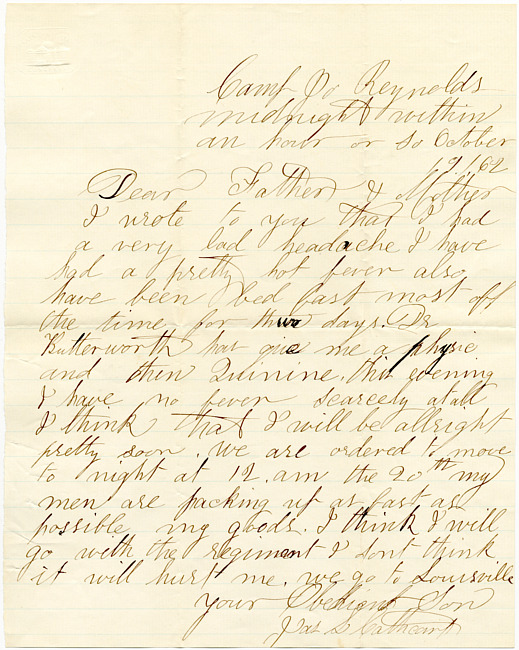 Camp Jo Reynolds
midnight within
an hour or so October
19/62
Dear Father & Mother
I wrote to you that I had
a very bad headache I have
had a pretty hot fever also
have been bed fast most off
the time for two days. Dr
Butterworth has give me a physic
and then Quinine. this evening
I have no fever scarcely atall
I think that I will be allright
pretty soon. we are ordered to move
to night at 12. am the 20th my
men are packing up as fast as
possible my goods. I think I will
go with the regiment I dont think
it will hurt me. we go to Louisville
your Obedient Son
Jas L Cathcart